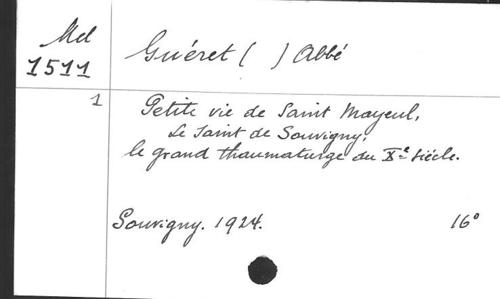 Mel
1511
Guéret ( ) Abbé
1
Petite vie de Saint Mayeul,
Le Saint de Souvigny,
le grand thaumaturge du Xe Siècle.
Souvigny. 1924.
16°